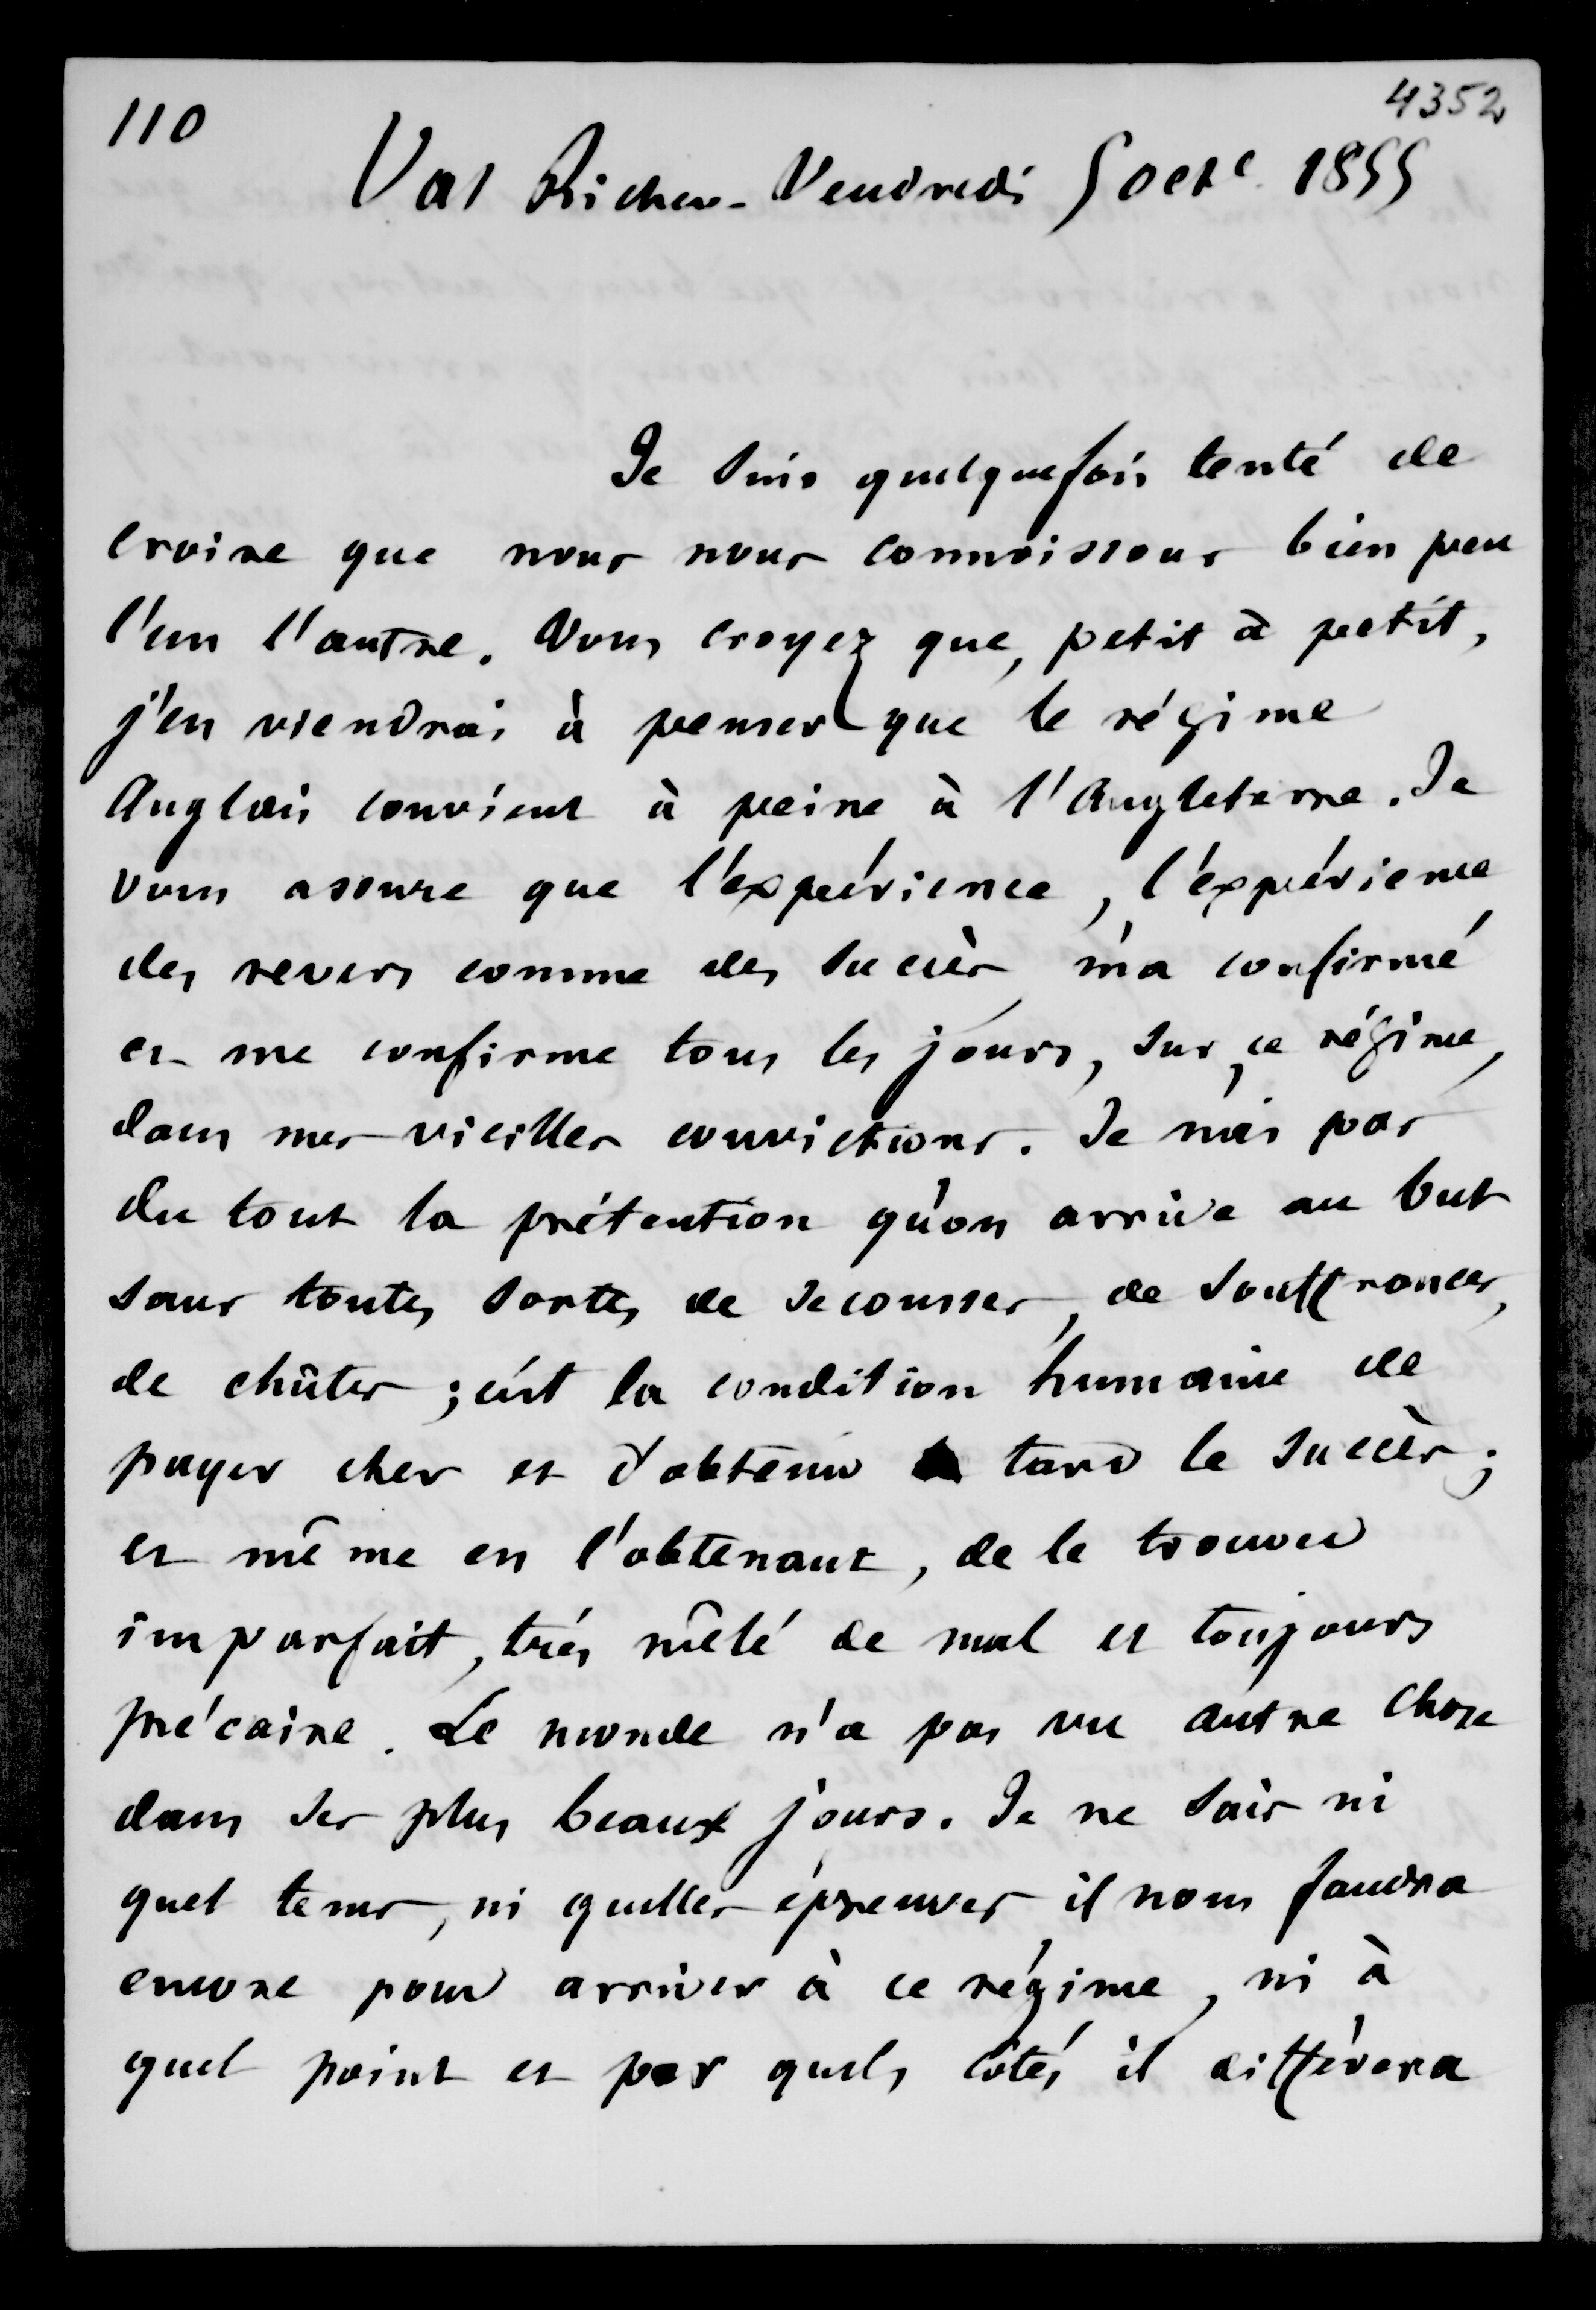 110
4352
Val Richer - Vendredi 5 octe 1855
Je suis quelquefois tenté de
croire que nous nous connoissons bien peu
l'un l'autre. Vous croyez que, petit à petit,
j'en viendrai à penser que le régime
Anglais convient à peine à l'Angleterre. Je
vous assure que l'expérience, l'expérience
des revers comme des succès m'a confirmé
et me confirme tous les jours, sur ce régime,
dans mes vieilles convictions. Je n'ai pas
du tout la prétention qu'on arrive au but
sans toutes sortes de secousses, de souffrances,
de chûtes ; c'est la condition humaine de
payer cher et d'obtenir tard le succès ;
et même en l'obtenant, de le trouver
imparfait, très mêlé de mal et toujours
précaire. Le monde n'a pas vu autre chose
dans ses plus beaux jours. Je ne sais ni
quel tems, ni quelles épreuves il nous faudra
encore pour arriver à ce régime, ni à
quel point et par quels côtés il différera